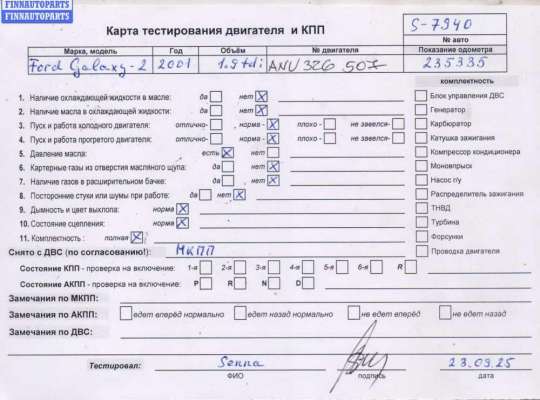 FINNAUTOPARTS
FINNAUTOPARTS
Карта тестирования двигателя и КПП
S-7940
№ авто
Марка, модель Год Объём № двигателя Показание одометра
Ford Galaxy-2 2001 1.9 tdi ANU 326 507 235335
комплектность
1. Наличие охлаждающей жидкости в масле: да нет
2. Наличие масла в охлаждающей жидкости: да нет
3. Пуск и работа холодного двигателя: отлично- норма - плохо - не завелся-
4. Пуск и работа прогретого двигателя: отлично- норма - плохо - не завелся-
5. Давление масла: есть нет
6. Картерные газы из отверстия масляного щупа: да нет
7. Наличие газов в расширительном бачке: да нет
8. Посторонние стуки или шумы при работе: да нет
9. Дымность и цвет выхлопа: норма
10. Состояние сцепления: норма
11. Комплектность : полная
Блок управления ДВС
Генератор
Карбюратор
Катушка зажигания
Компрессор кондиционера
Моновпрыск
Насос г/у
Распределитель зажигания
ТНВД
Турбина
Форсунки
Проводка двигателя
Снято с ДВС (по согласованию!): МКПП
Состояние КПП - проверка на включение: 1-я 2-я 3-я 4-я 5-я 6-я R
Состояние АКПП - проверка на включение: P R N D
Замечания по МКПП:
Замечания по АКПП: едет вперёд нормально едет назад нормально не едет вперёд не едет назад
Замечания по ДВС:
Тестировал: Senna 23.09.25
ФИО подпись дата